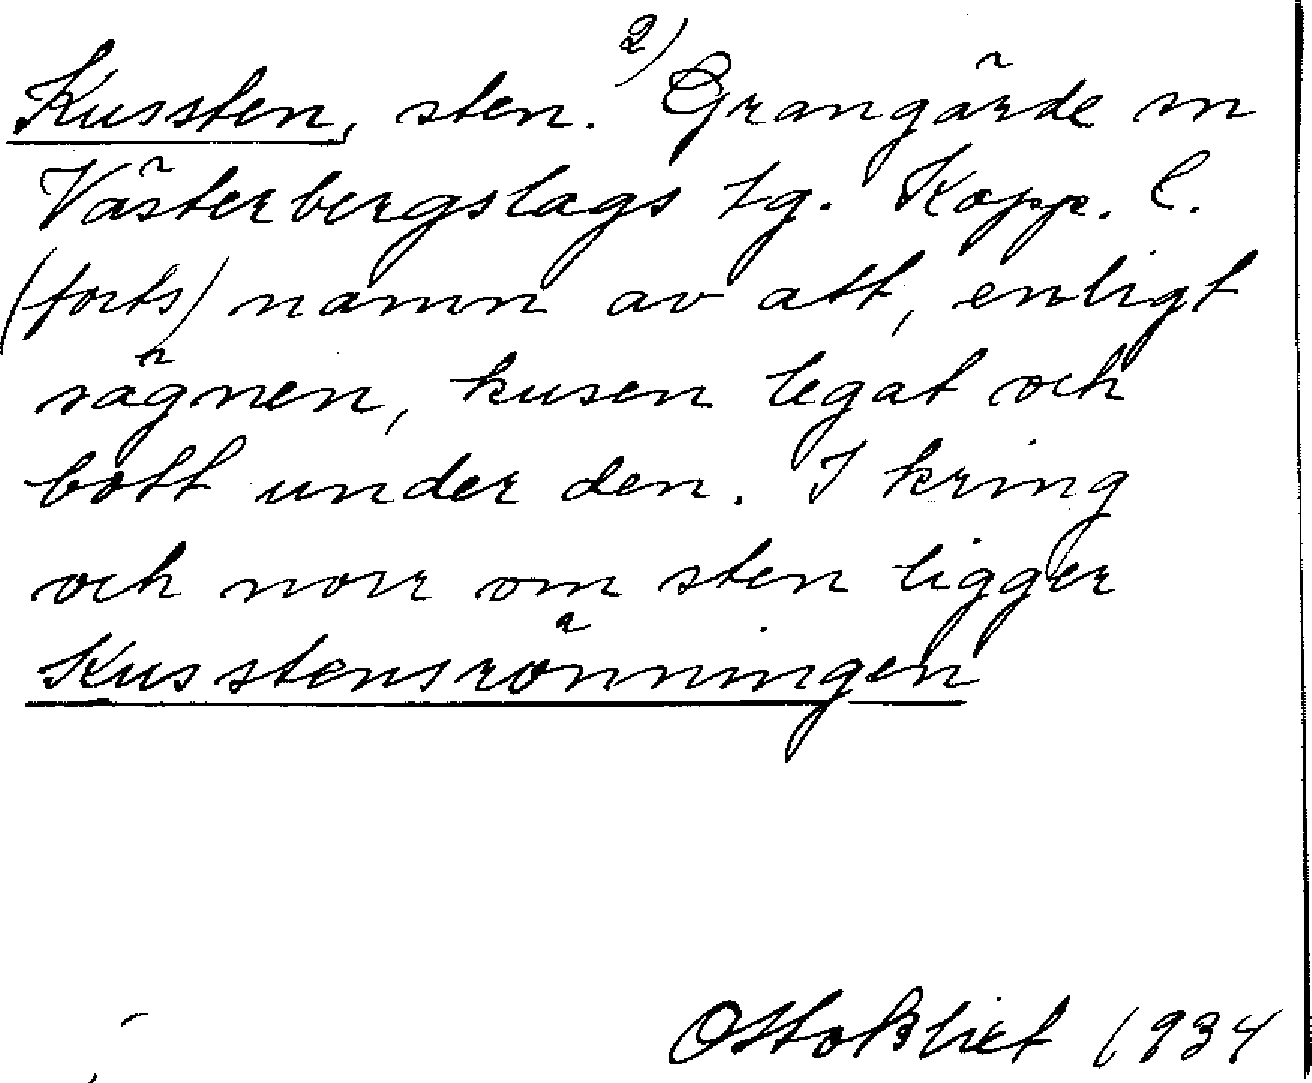 Kussten, sten. 2) Grangärde sn
Västerbergslags tg. Kopp. l.
(forts) namn av att, enligt
sägnen, kusen legat och
bott under den. I kring
och norr om sten ligger
Kusstensrönningen
Otto Blixt 1934